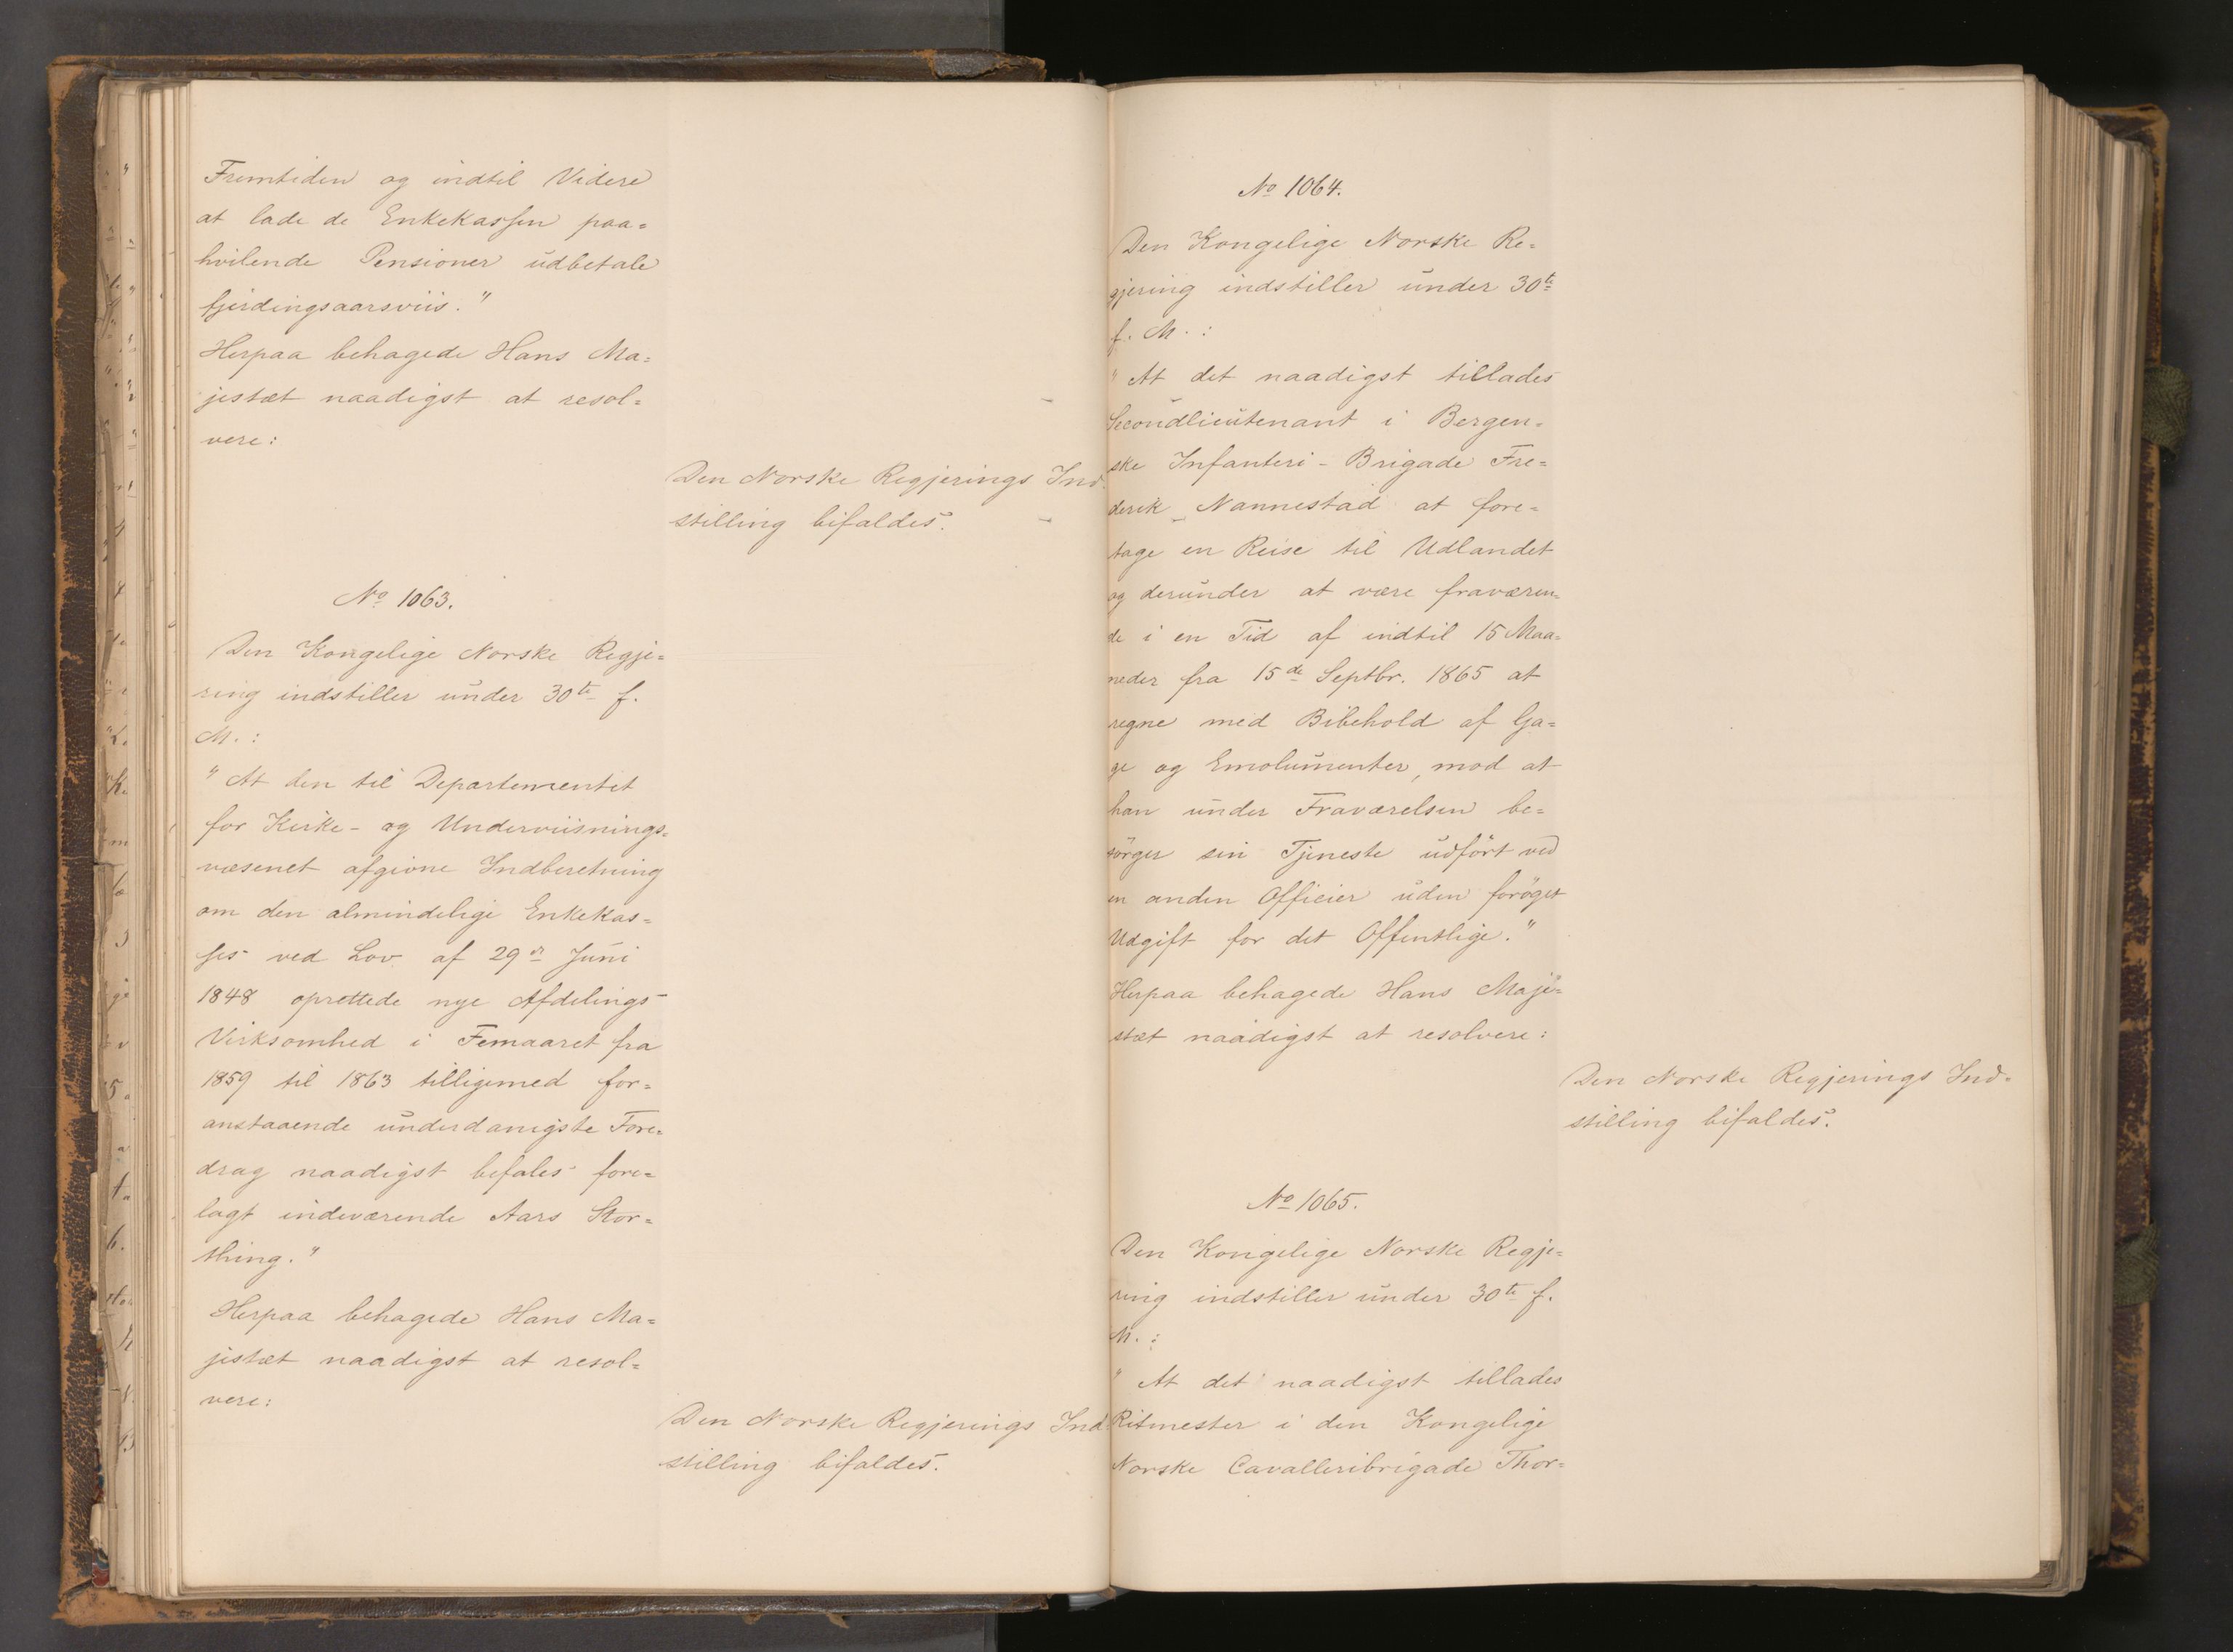 Fremtiden og indtil Videre
at lade de Enkekassen paa=
hvilende Pensioner udbetale
fjerdingsaarsviis."
Herpaa behagede Hans Ma=
jestæt naadigst at resol=
vere:
Den Norske Regjerings Ind=
stilling bifaldes.
No 1063.
Den Kongelige Norske Regje=
ring indstiller under 30te f.
M.:
"At den til Departementet
for Kirke- og Underviisnings=
væsenet afgivne Indberetning
om den almindelige Enkekas=
ses ved Lov af 29de Juni
1848 oprettede nye Afdelings
Virksomhed i Femaaret fra
1859 til 1863 tilligemed for=
anstaaende underdanigste Fore=
drag naadigst befales fore=
lagt indeværende Aars Stor=
thing."
Herpaa behagede Hans Ma=
jestæt naadigst at resol=
vere:
Den Norske Regjerings Ind=
stilling bifaldes.
No 1064.
Den Kongelige Norske Re=
gjering indstiller under 30te
f. M.:
"At det naadigst tillades
Secondlieutenant i Bergen=
ske Infanteri-Brigade Fre=
derik Nannestad at fore=
tage en Reise til Udlandet
og derunder at være fraværen=
de i en Tid af indtil 15 Maa=
neder fra 15de Septbr. 1865 at
regne med Bibehold af Ga=
ge og Emolumenter, mod at
han under Fraværelsen be=
sörger sin Tjeneste udfört ved
en anden Officier uden foröget
Udgift for det Offentlige."
Herpaa behagede Hans Maje=
stæt naadigst at resolvere:
Den Norske Regjerings Ind=
stilling bifaldes.
No 1065.
Den Kongelige Norske Regje=
ring indstiller under 30te f.
M.:
"At det naadigst tillades
Ritmester i den Kongelige
Norske Cavalleribrigade Thor=